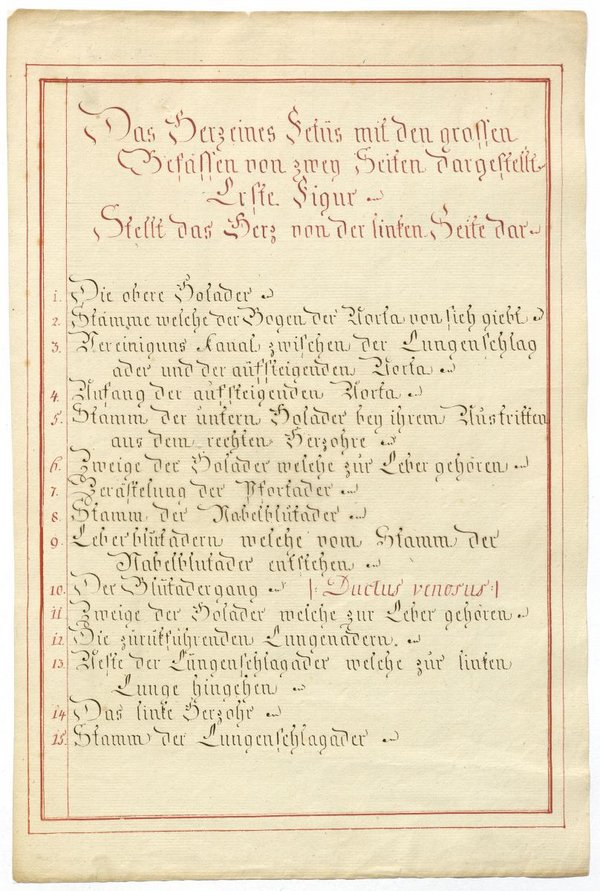 Das Herz eines Fetus mit den grossen
Gefässen von zwey Seiten dargestellt
Erste Figur
Stellt das Herz von der linken Seite dar
1. Die obere Holader
2. Stämme welche der Bogen der Aorta von sich giebt
3. Vereiniguns Kanal zwischen der Lungenschlag
ader und der aufsteigenden Aorta
4. Anfang der aufsteigenden Aorta
5. Stamm der untern Holader bey ihrem Austritten
aus dem rechten Herzohre
6. Zweige der Holader welche zur Leber gehören
7. Verästelung der Pfortader
8. Stamm der Nabelblutader
9. Leberblutadern welche vom Stamm der
Nabelblutader entstehen
10. Der Blutadergang |: Ductus venosus :|
11. Zweige der Holader welche zur Leber gehören
12. Die zürükführenden Lungenadern.
13. Aeste der Lungenschlagader welche zur linken
Lunge hingehen
14 Das linke Herzohr
15. Stamm der Lungenschlagader